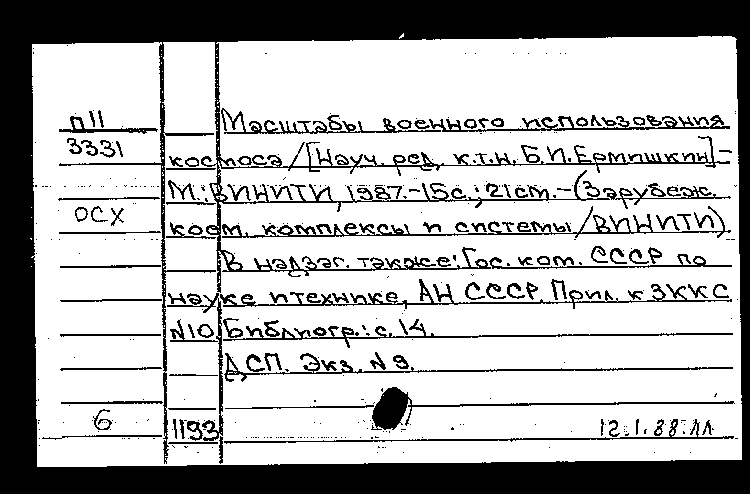 п11 Масштабы военного использования
3331 космоса/[Науч. ред. к.т.н. Б.И.Ермишкин]=
М.:ВИНИТИ, 1987.-15с.; 21см.-(Зарубеж.
ОСХ косм. комплексы и системы/ВИНИТИ).
В надзаг. также: Гос. ком. СССР по
науке и технике, АН СССР. Прил. к ЗККС
N10. Библиогр.: с. 14.
ДСП. Экз. N 9.
6 1193 12.1.88.лл